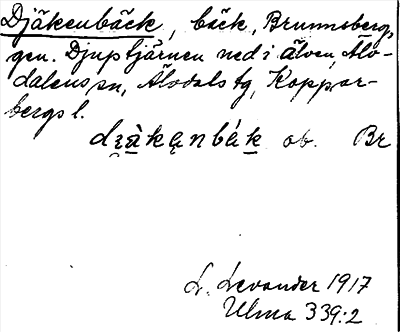 Djäkenbäck, bäck, Brunnsberg,
gen. Djuptjärnen ned i älven, Älv-
dalens sn, Älvdals tg, Koppar-
bergs l.
ob. Br
L. Levander 1917
Ulma 339:2